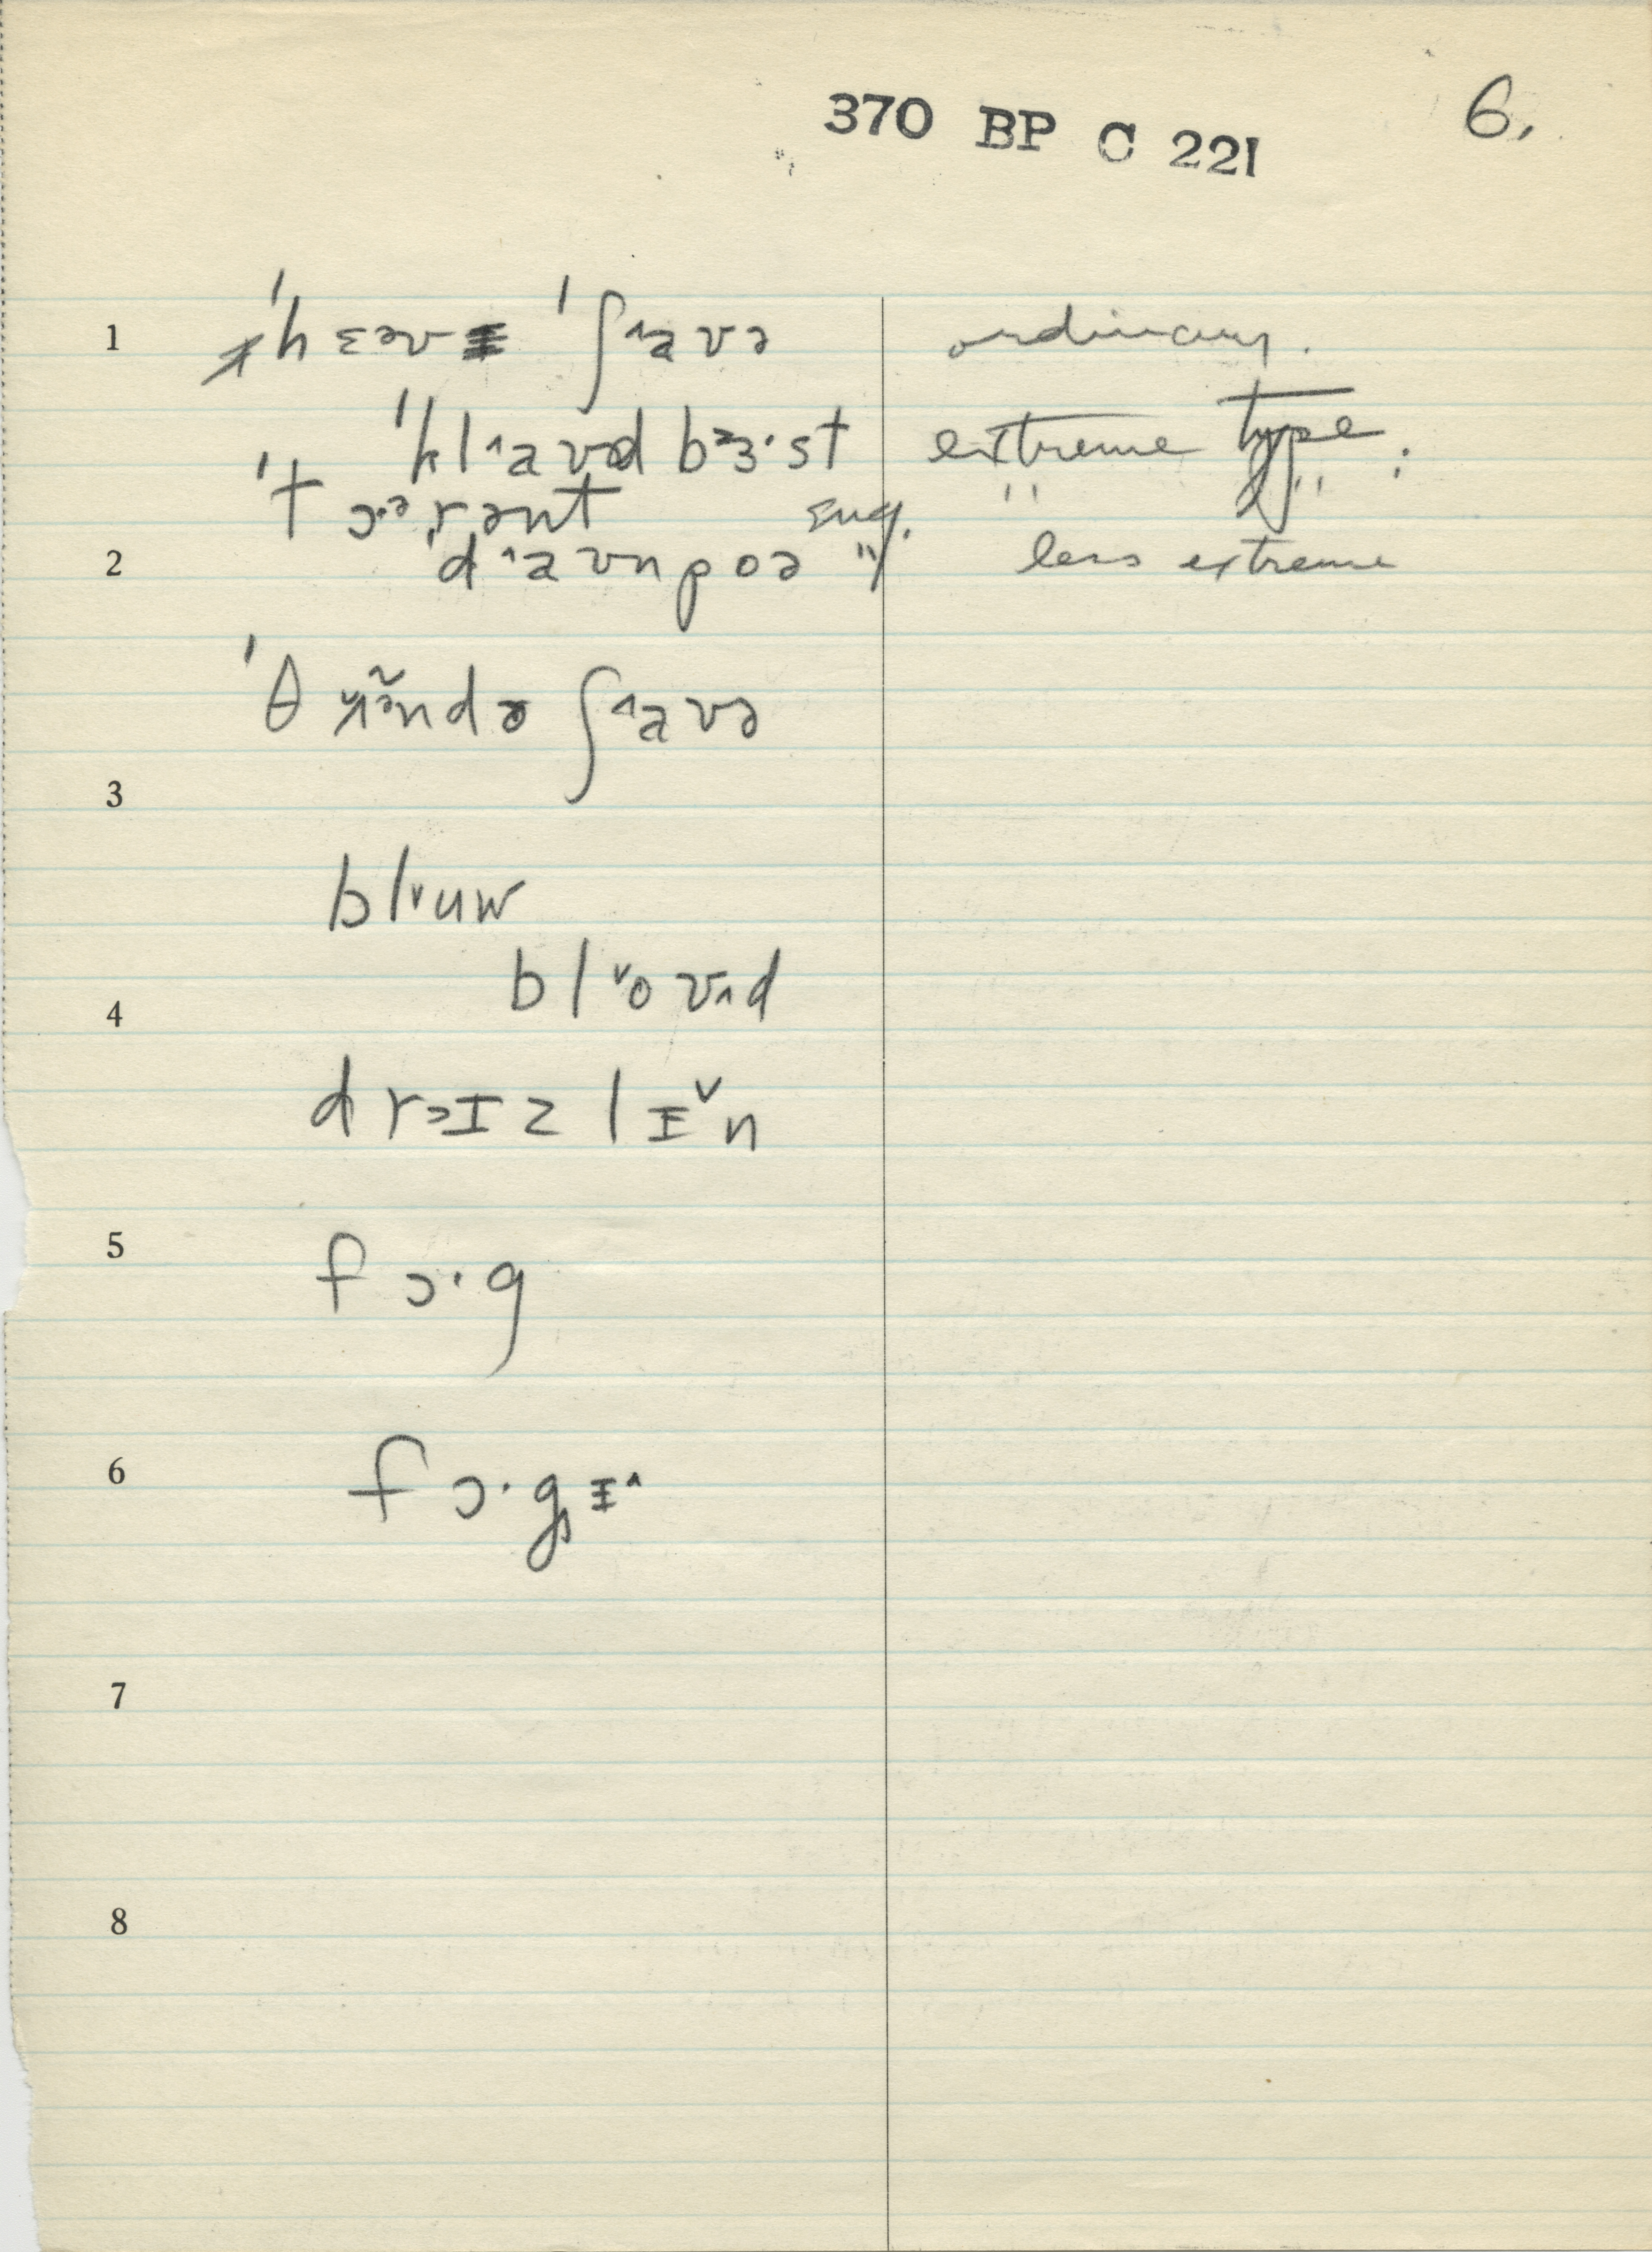 370 BP C 221 6.
1 ˈhɛəvɪ ˈʃ˄aʊə ordinary.
ˈkl˄aʊd bɜ·st extreme type.
ˈtɔ·ərənt sug. " " :
2 ˈd˄aʊnpoə " less extreme
ˈθ ʌ̃ndə ʃ˄aʊə
3
bl˅uw
bl˅oʊ˄d
4
drɪzlɪ˅n
5
fɔ·g
6 fɔ·gɪ˄
7
8